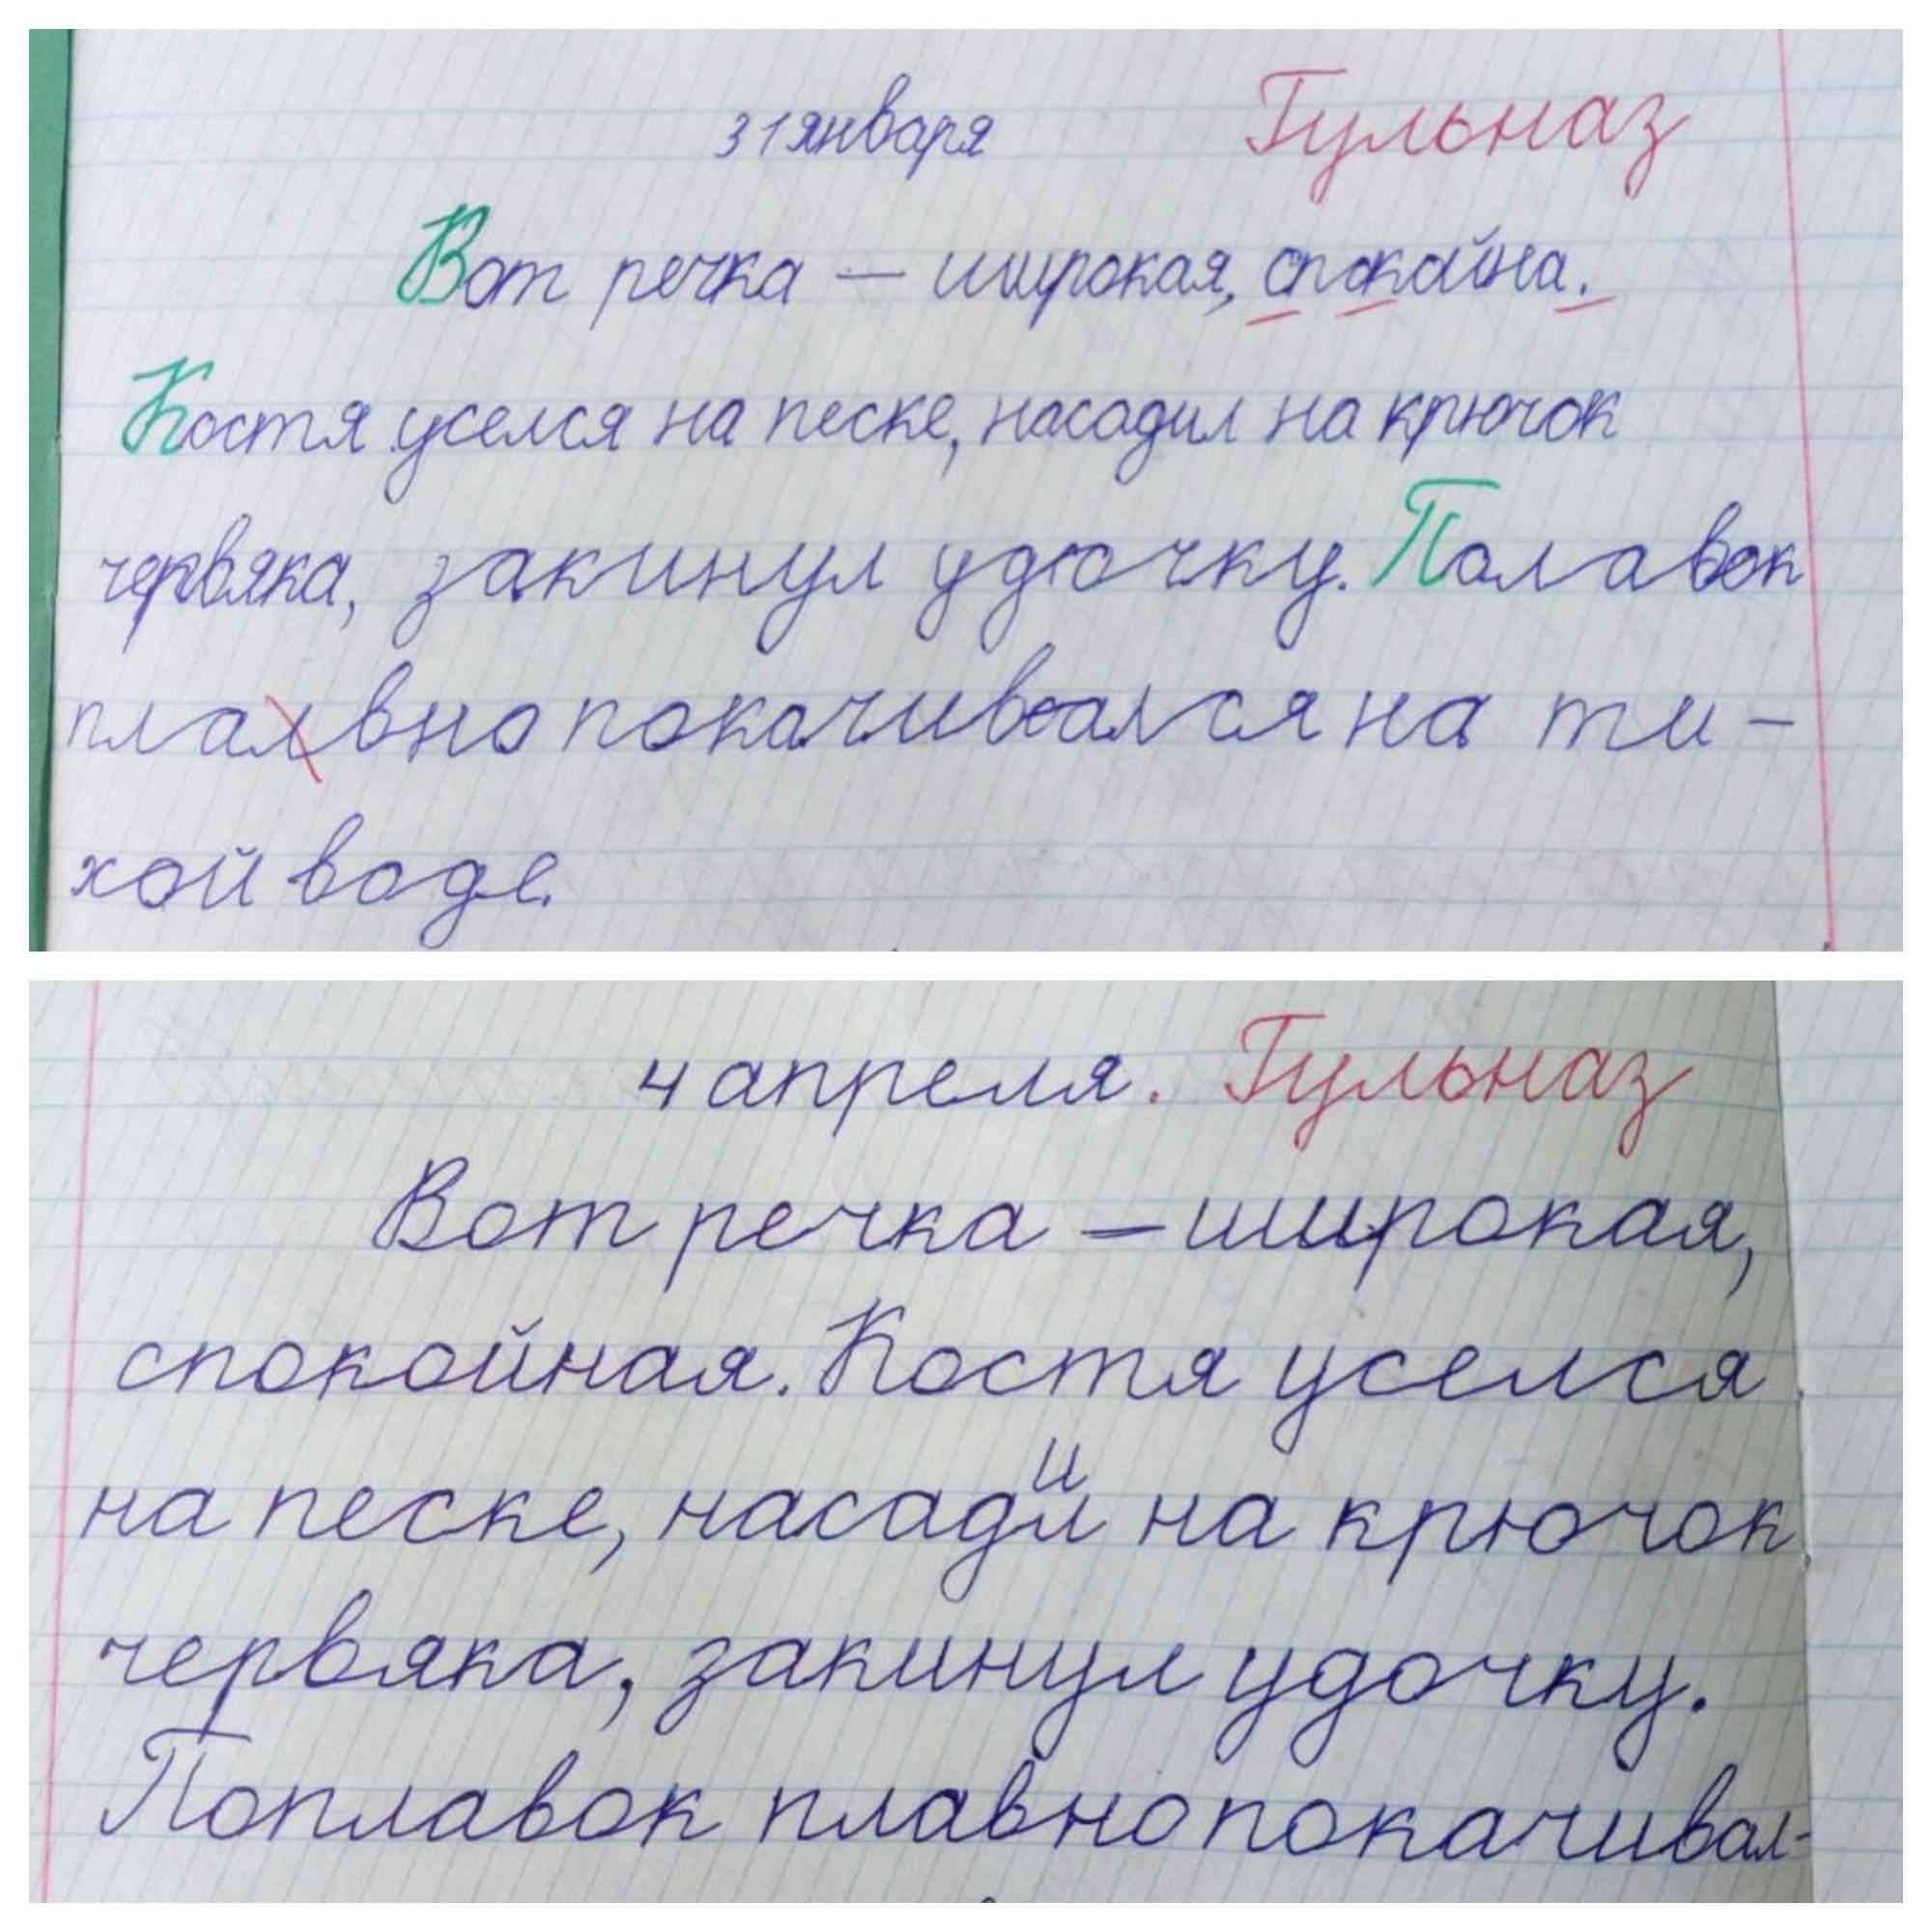 31 января Гульназ
Вот речка — широкая, спокайна.
Костя уселся на песке, насадил на крючок
червяка, закинул удочку. Полавок
плавно покачивался на ти-
хой воде.
4 апреля. Гульназ
Вот речка – широкая,
спокойная. Костя уселся
на песке, насадил на крючок
червяка, закинул удочку.
Поплавок плавно покачивал-